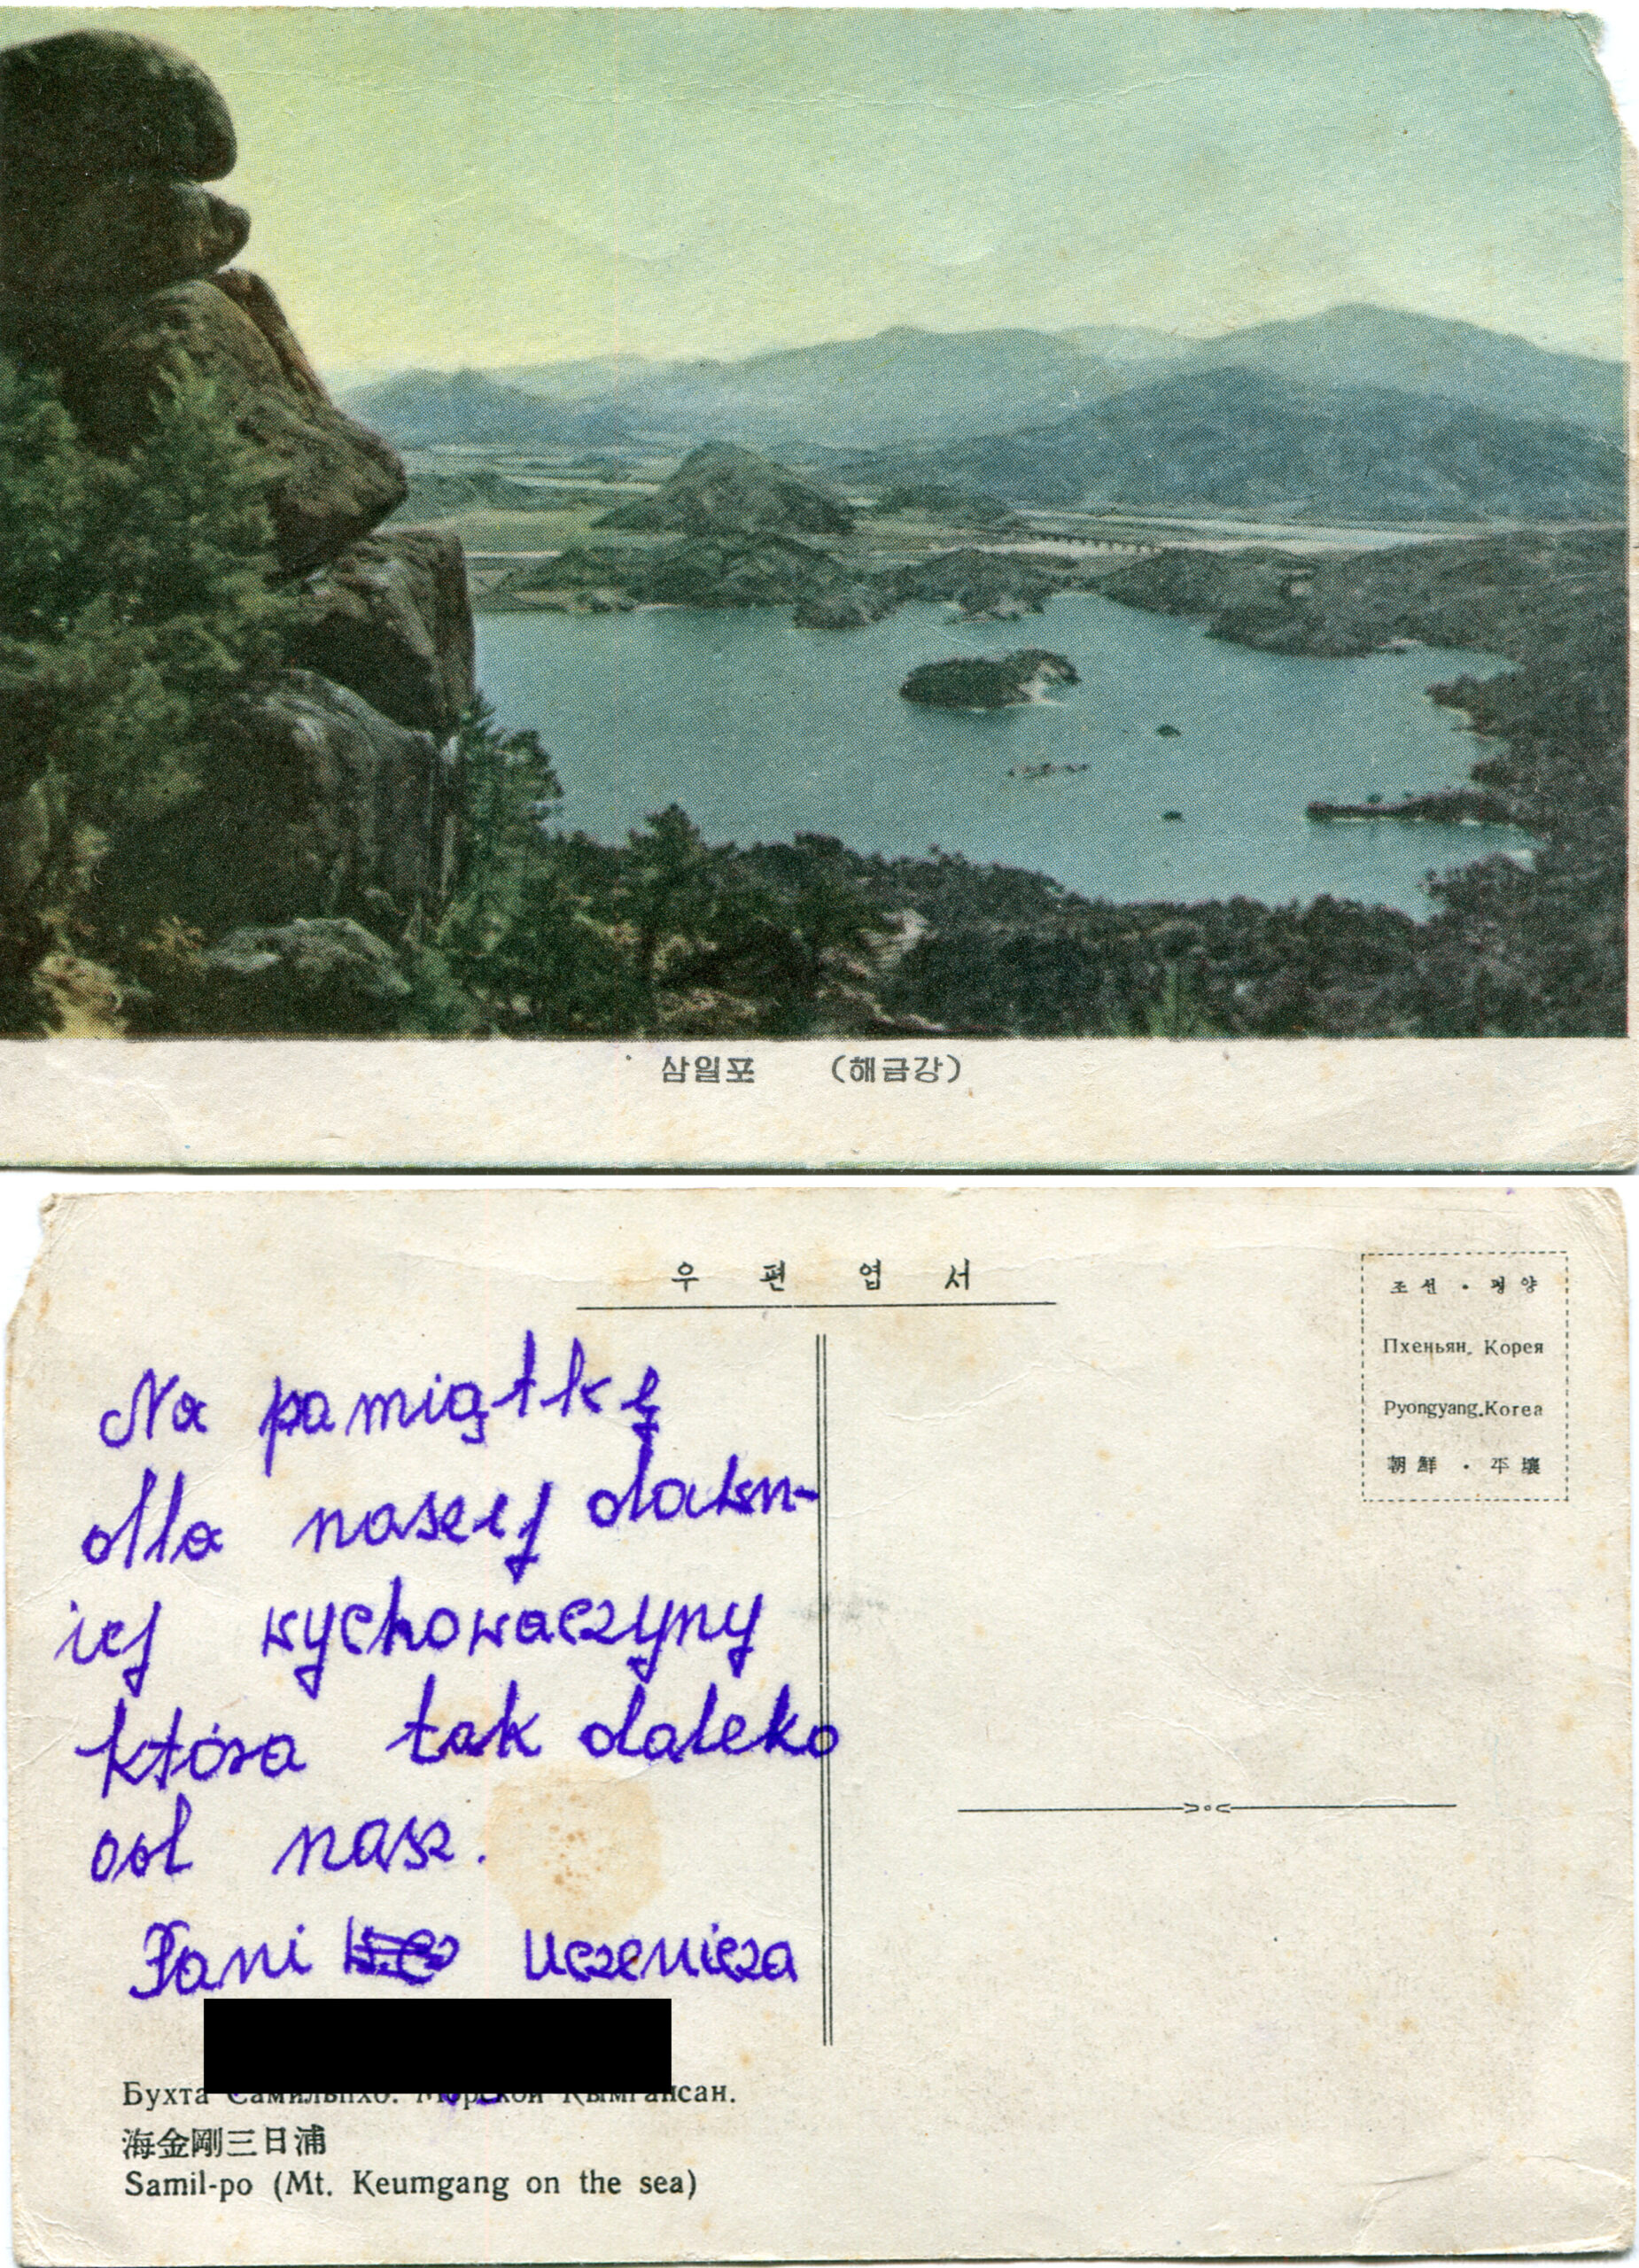 삼일포 (해금강)
우편엽서
조선 · 평양
Пхеньян, Корея
Pyongyang.Korea
朝鮮 · 平壤
Na pamiątkę
dla naszej dawn-
iej wychowaczyny
która tak daleko
od nasz.
Pani Uczenicza
Бухта Самильпхо. Морской Кымгансан.
海金剛三日浦
Samil-po (Mt. Keumgang on the sea)